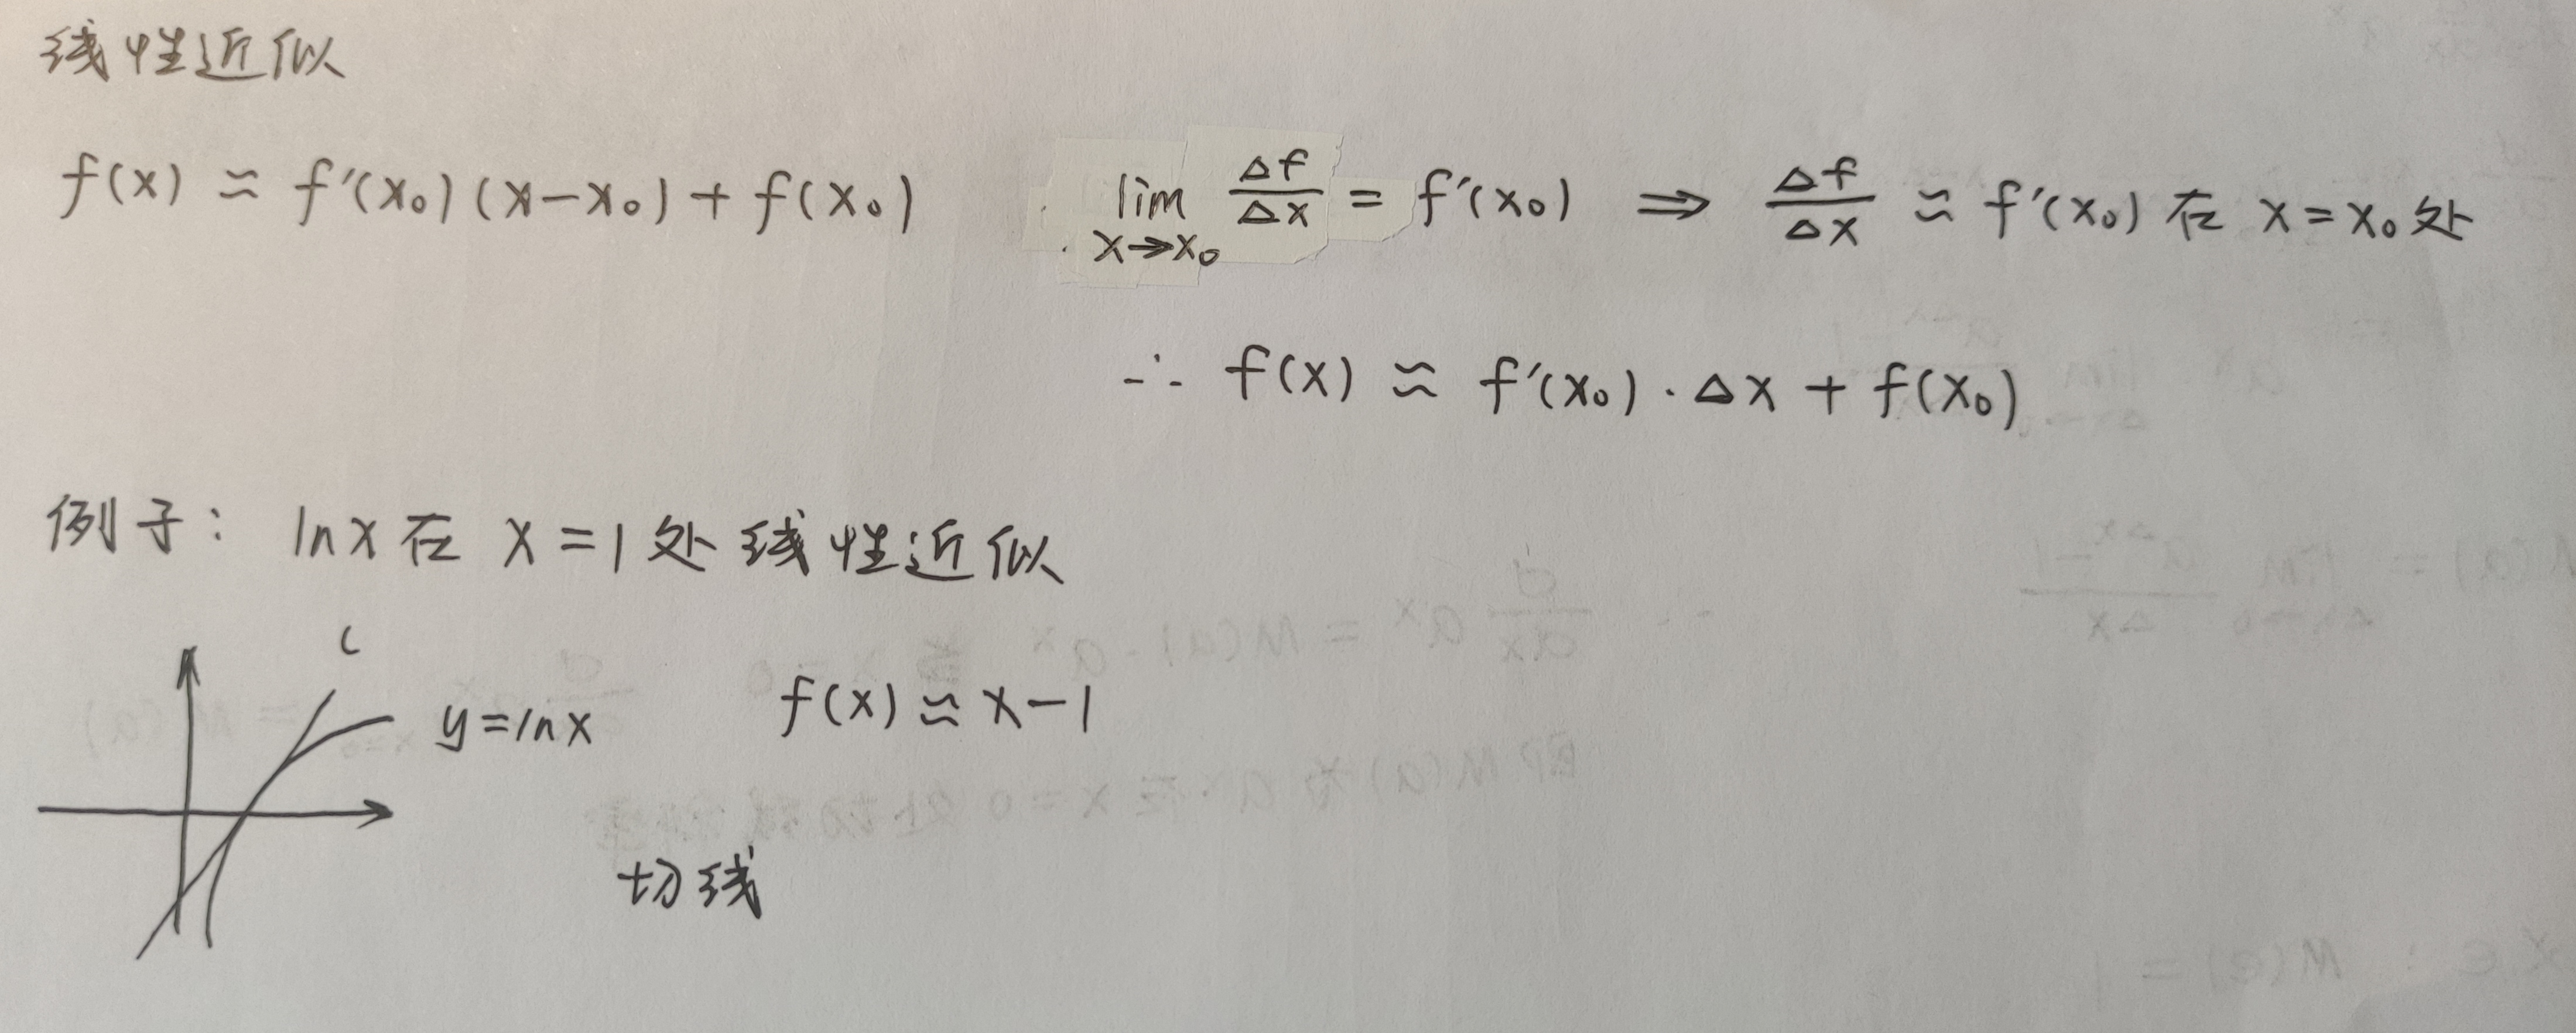 线性近似
f(x) ≈ f'(x₀)(x-x₀) + f(x₀)
lim x→x₀ Δf/Δx = f'(x₀) ⇒ Δf/Δx ≈ f'(x₀) 在 x = x₀ 处
∴ f(x) ≈ f'(x₀)·Δx + f(x₀)
例子: lnx 在 x = 1 处 线性近似
y = lnx
f(x) ≈ x - 1
切线